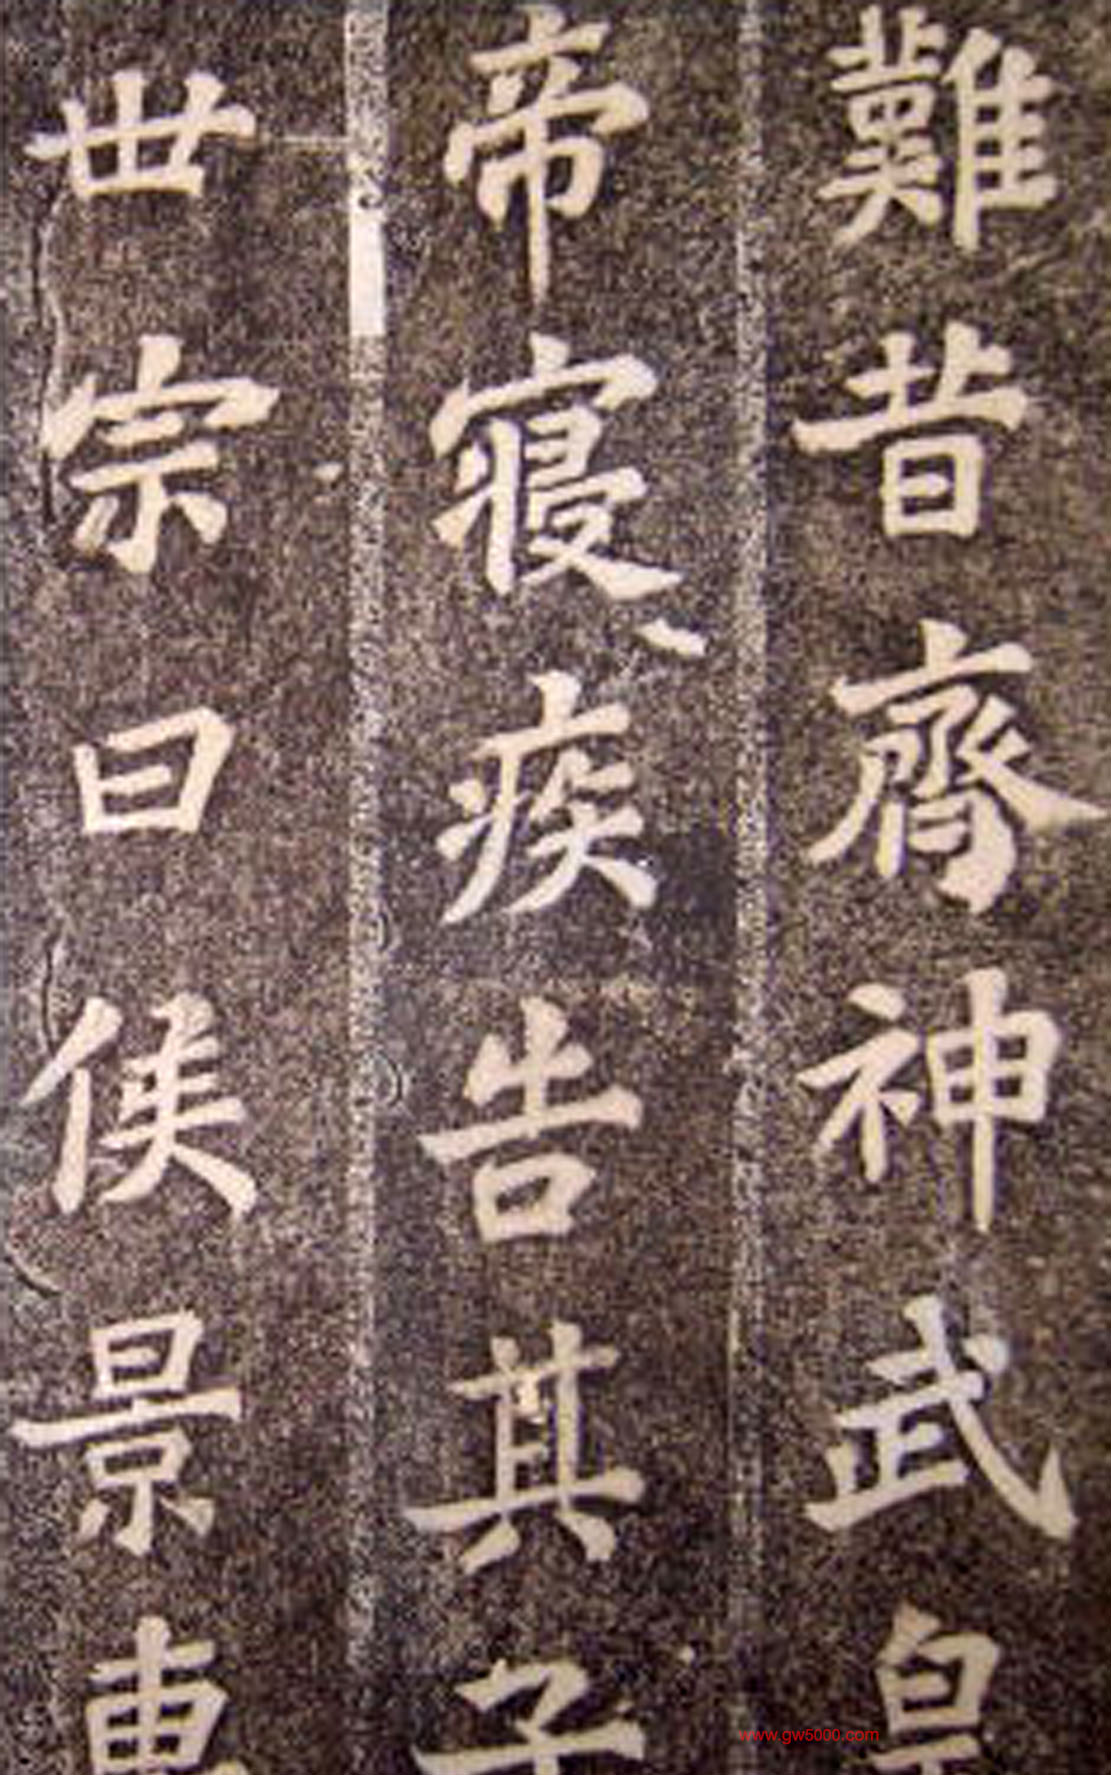 難昔齊神武皇
帝寝疾告其子
世宗曰侯景專
www.gw5000.com